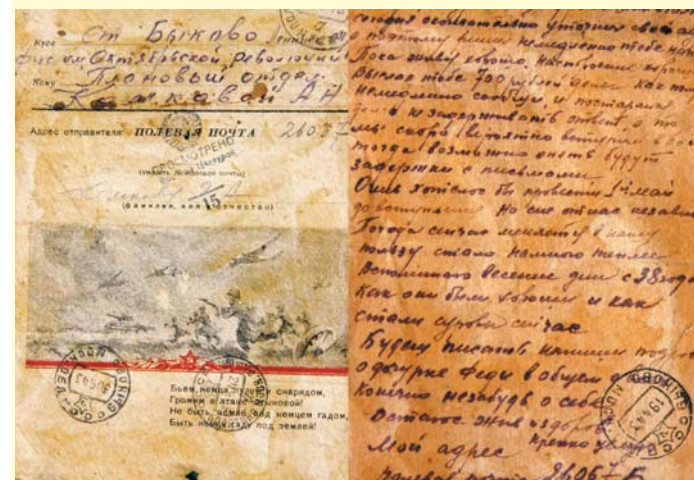 Куда Ст Быково Ленинской
ж.д. им. Октябрьской Революции
Кому Плановый отдел
А Н
Адрес отправителя: ПОЛЕВАЯ ПОЧТА 26067
ПРОСМОТРЕНО
Цензурой
(указать № полевой почты)
15
(фамилия, имя и отчество)
Бьем немца пулей и снарядом,
Громим в атаке штыковой!
Не быть земле под немцем гадом,
Быть немцу гаду под землей!
БЫКОВО МОСКОВ
сегодня окончательно уточнил свой
а поэтому пишу немедленно тебе
Пока живу хорошо, настроение хорошее
Выслал тебе 700 рублей денег как
немедленно сообщи, и постарайся
не задерживать ответ, а то
мы скоро вероятно вступим в
тогда возможно опять будут
задержки с письмами
Очень хотелось бы провести 1е мая
до вступления но сие от нас
Погода сейчас меняется в нашу
пользу стало намного теплее
Вспоминаю весенние дни с 38 года
Как они были хороши и как
стали суровы сейчас
Будешь писать напиши
о дочурке в общем
Конечно незабудь о себе
Остаюсь жив здоров
Крепко
Мой адрес
Полевая почта 26067-Б
БЫКОВО МОСК
19 4 43